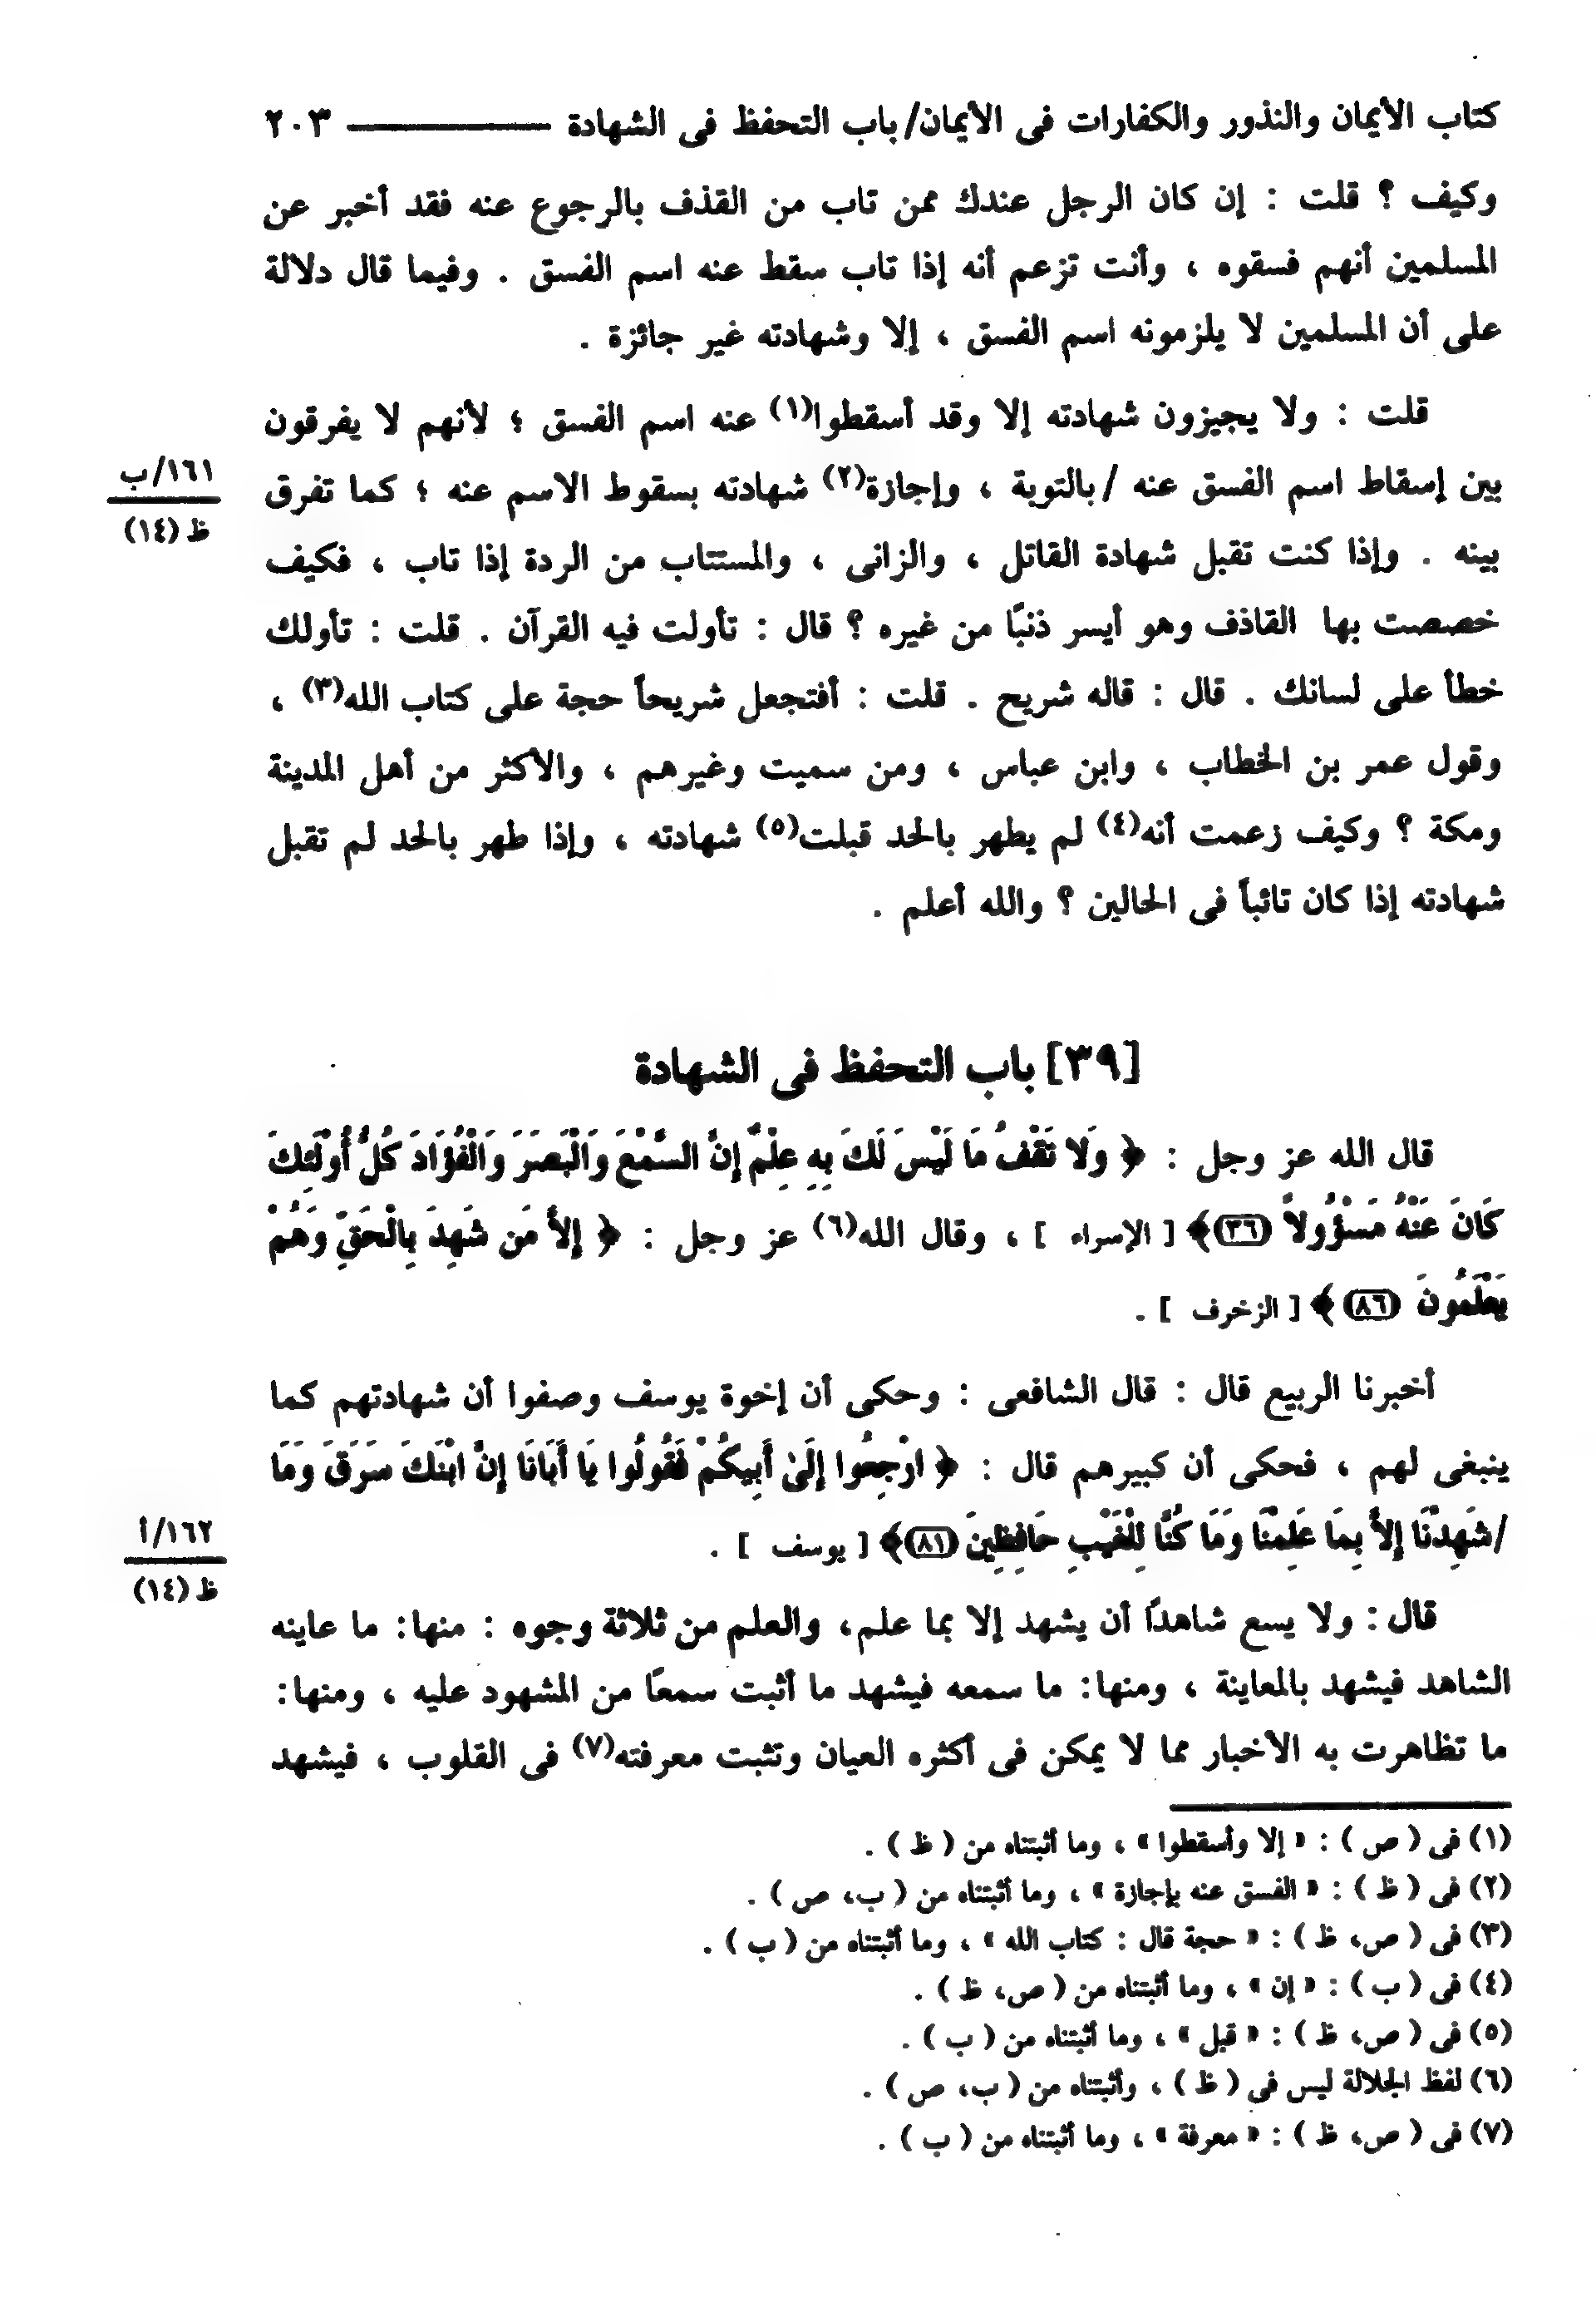 كتاب الأيمان والنذور والكفارات فى الأيمان/ باب التحفظ فى الشهادة ــــــــــ ٢٠٣
وكيف ؟ قلت : إن كان الرجل عندك ممن تاب من القذف بالرجوع عنه فقد أخبر عن
المسلمين أنهم فسقوه ، وأنت تزعم أنه إذا تاب سقط عنه اسم الفسق . وفيما قال دلالة
على أن المسلمين لا يلزمونه اسم الفسق ، إلا وشهادته غير جائزة .
قلت : ولا يجيزون شهادته إلا وقد أسقطوا(١) عنه اسم الفسق ؛ لأنهم لا يفرقون
١٦١/ب
ظ (١٤)
بين إسقاط اسم الفسق عنه /بالتوبة ، وإجازة(٢) شهادته بسقوط الاسم عنه ؛ كما تفرق
بينه . وإذا كنت تقبل شهادة القاتل ، والزانى ، والمستتاب من الردة إذا تاب ، فكيف
خصصت بها القاذف وهو أيسر ذنبًا من غيره ؟ قال : تأولت فيه القرآن . قلت : تأولك
خطأ على لسانك . قال : قاله شريح . قلت : أفتجعل شريحاً حجة على كتاب الله(٣) ،
وقول عمر بن الخطاب ، وابن عباس ، ومن سميت وغيرهم ، والأكثر من أهل المدينة
ومكة ؟ وكيف زعمت أنه(٤) لم يطهر بالحد قبلت(٥) شهادته ، وإذا طهر بالحد لم تقبل
شهادته إذا كان تائباً فى الحالين ؟ والله أعلم .
[٣٩] باب التحفظ فى الشهادة
قال الله عز وجل : ﴿ وَلا تَقْفُ مَا لَيْسَ لَكَ بِهِ عِلْمٌ إِنَّ السَّمْعَ وَالْبَصَرَ وَالْفُؤَادَ كُلُّ أُوْلَئِكَ
كَانَ عَنْهُ مَسْؤُولاً (٣٦)﴾ [ الإسراء ] ، وقال الله(٦) عز وجل : ﴿ إِلاَّ مَن شَهِدَ بِالْحَقِّ وَهُمْ
يَعْلَمُونَ (٨٦)﴾ [ الزخرف ] .
أخبرنا الربيع قال : قال الشافعى : وحكى أن إخوة يوسف وصفوا أن شهادتهم كما
ينبغى لهم ، فحكى أن كبيرهم قال : ﴿ ارْجِعُوا إِلَىٰ أَبِيكُمْ فَقُولُوا يَا أَبَانَا إِنَّ ابْنَكَ سَرَقَ وَمَا
١٦٢/أ
ظ (١٤)
/شَهِدْنَا إِلاَّ بِمَا عَلِمْنَا وَمَا كُنَّا لِلْغَيْبِ حَافِظِينَ (٨١)﴾ [ يوسف ] .
قال : ولا يسع شاهدًا أن يشهد إلا بما علم، والعلم من ثلاثة وجوه : منها: ما عاينه
الشاهد فيشهد بالمعاينة ، ومنها: ما سمعه فيشهد ما أثبت سمعًا من المشهود عليه ، ومنها:
ما تظاهرت به الأخبار مما لا يمكن فى أكثره العيان وتثبت معرفته(٧) فى القلوب ، فيشهد
(١) فى ( ص ) : « إلا وأسقطوا » ، وما أثبتناه من ( ظ ) .
(٢) فى ( ظ ) : « الفسق عنه بإجازة » ، وما أثبتناه من ( ب، ص ) .
(٣) فى ( ص، ظ ) : « حجة قال : كتاب الله » ، وما أثبتناه من ( ب ) .
(٤) فى ( ب ) : « إن » ، وما أثبتناه من ( ص، ظ ) .
(٥) فى ( ص، ظ ) : « قبل » ، وما أثبتناه من ( ب ) .
(٦) لفظ الجلالة ليس فى ( ظ ) ، وأثبتناه من ( ب، ص ) .
(٧) فى ( ص، ظ ) : « معرفة » ، وما أثبتناه من ( ب ) .